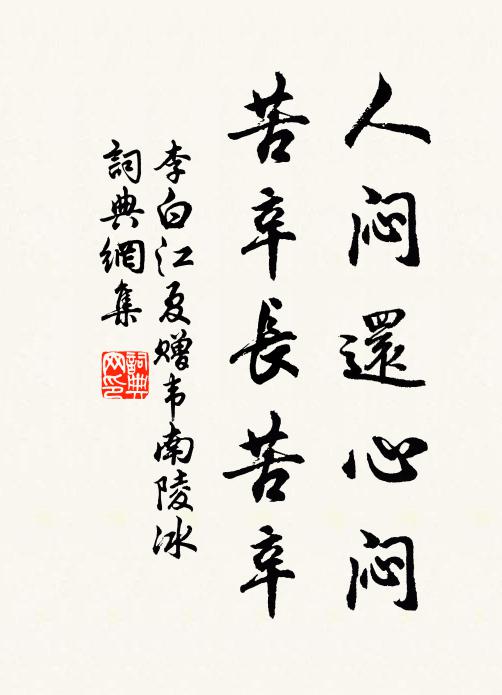 人闷還心闷
苦辛長苦辛
李白江夏赠韦南陵冰
詞典網集
詞典网印